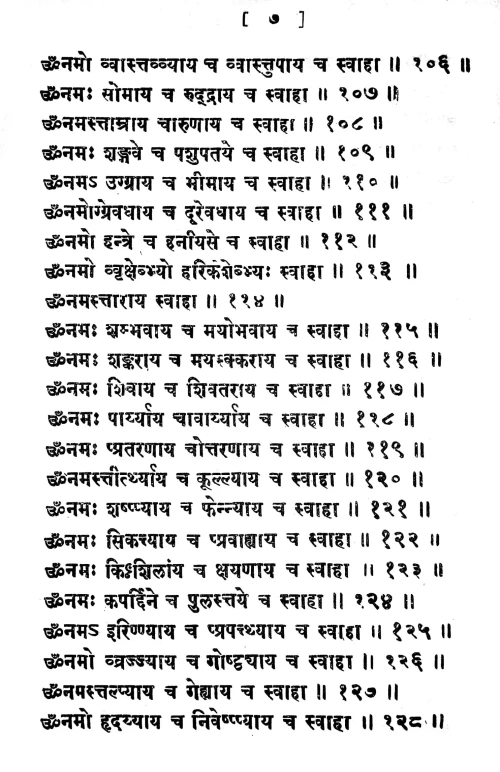 [ ७ ]
ॐनमो व्वास्तव्व्याय च व्वास्तुपाय च स्वाहा ॥ १०६ ॥
ॐनमः सोमाय च रुद्द्राय च स्वाहा ॥ १०७ ॥
ॐनमस्ताम्राय चारुणाय च स्वाहा ॥ १०८ ॥
ॐनमः शङ्गवे च पशुपतये च स्वाहा ॥ १०९ ॥
ॐनमऽ उग्ग्राय च भीमाय च स्वाहा ॥ ११० ॥
ॐनमोग्ग्रेवधाय च दूरेवधाय च स्वाहा ॥ १११ ॥
ॐनमो हन्त्रे च हनीयसे च स्वाहा ॥ ११२ ॥
ॐनमो व्वृक्षेब्भ्यो हरिकेशेब्भ्यः स्वाहा ॥ ११३ ॥
ॐनमस्ताराय स्वाहा ॥ ११४ ॥
ॐनमः शम्भवाय च मयोभवाय च स्वाहा ॥ ११५ ॥
ॐनमः शङ्कराय च मयस्क्कराय च स्वाहा ॥ ११६ ॥
ॐनमः शिवाय च शिवतराय च स्वाहा ॥ ११७ ॥
ॐनमः पार्य्याय चावार्य्याय च स्वाहा ॥ ११८ ॥
ॐनमः प्प्रतरणाय चोत्तरणाय च स्वाहा ॥ ११९ ॥
ॐनमस्तीर्त्थ्याय च कूल्ल्याय च स्वाहा ॥ १२० ॥
ॐनमः शष्प्प्याय च फेन्न्याय च स्वाहा ॥ १२१ ॥
ॐनमः सिकत्त्याय च प्प्रवाह्याय च स्वाहा ॥ १२२ ॥
ॐनमः किᳪशिलाय च क्षयणाय च स्वाहा ॥ १२३ ॥
ॐनमः कपर्दिने च पुलस्तये च स्वाहा ॥ १२४ ॥
ॐनमऽ इरिण्ण्याय च प्प्रपत्थ्याय च स्वाहा ॥ १२५ ॥
ॐनमो व्व्रज्ज्याय च गोष्ठ्याय च स्वाहा ॥ १२६ ॥
ॐनमस्तल्प्याय च गेह्याय च स्वाहा ॥ १२७ ॥
ॐनमो हृदय्याय च निवेष्प्प्याय च स्वाहा ॥ १२८ ॥